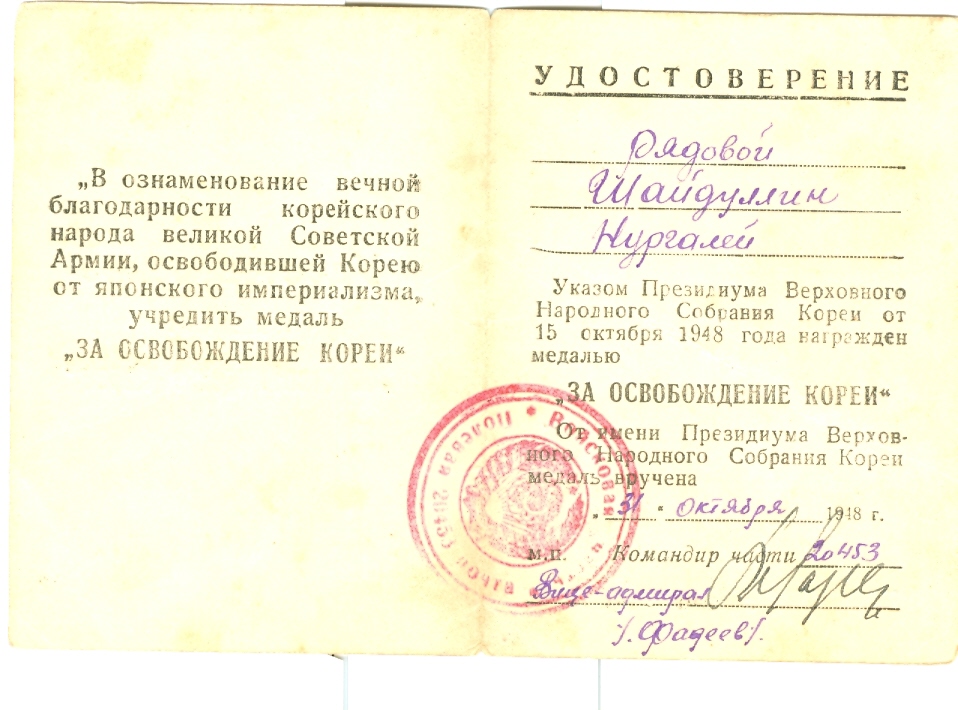 „В ознаменование вечной
благодарности корейского
народа великой Советской
Армии, освободившей Корею
от японского империализма,
учредить медаль
„ЗА ОСВОБОЖДЕНИЕ КОРЕИ“
УДОСТОВЕРЕНИЕ
Рядовой
Шайдуллин
Нургалей
Указом Президиума Верховного
Народного Собрания Кореи от
15 октября 1948 года награжден
медалью
„ЗА ОСВОБОЖДЕНИЕ КОРЕИ“
От имени Президиума Верхов-
ного Народного Собрания Кореи
медаль вручена
„31 “ октября 1948 г.
м.п. Командир части 20453
Вице-адмирал
/. Фадеев/.
Полевая почта Войсковая часть